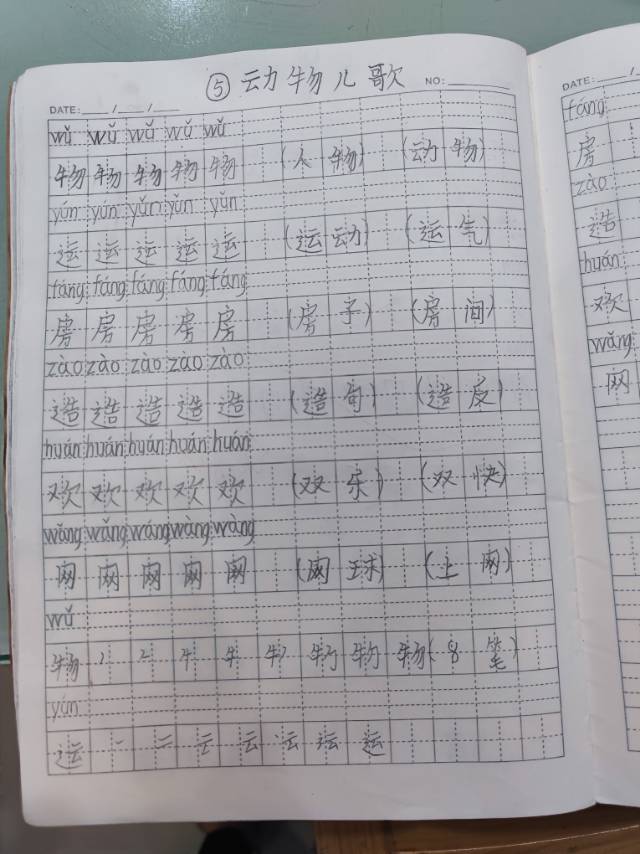 ⑤动物儿歌
DATE: / / NO:
wǔ wǔ wǔ wǔ wǔ
物 物 物 物 物 (人物) (动物)
yún yún yǔn yǔn yǔn
运 运 运 运 运 (运动) (运气)
fáng fáng fáng fáng fáng
房 房 房 房 房 (房子) (房间)
zào zào zào zào zào
造 造 造 造 造 (造句) (造反)
huán huán huán huán huán
欢 欢 欢 欢 欢 (双乐) (双快)
wǎng wǎng wáng wàng wàng
网 网 网 网 网 (网球) (上网)
wǔ
物 (8笔)
yún
运 一 二 云 云 运
DATE: /
fáng
房
zào
造
huán
欢
wǎng
网